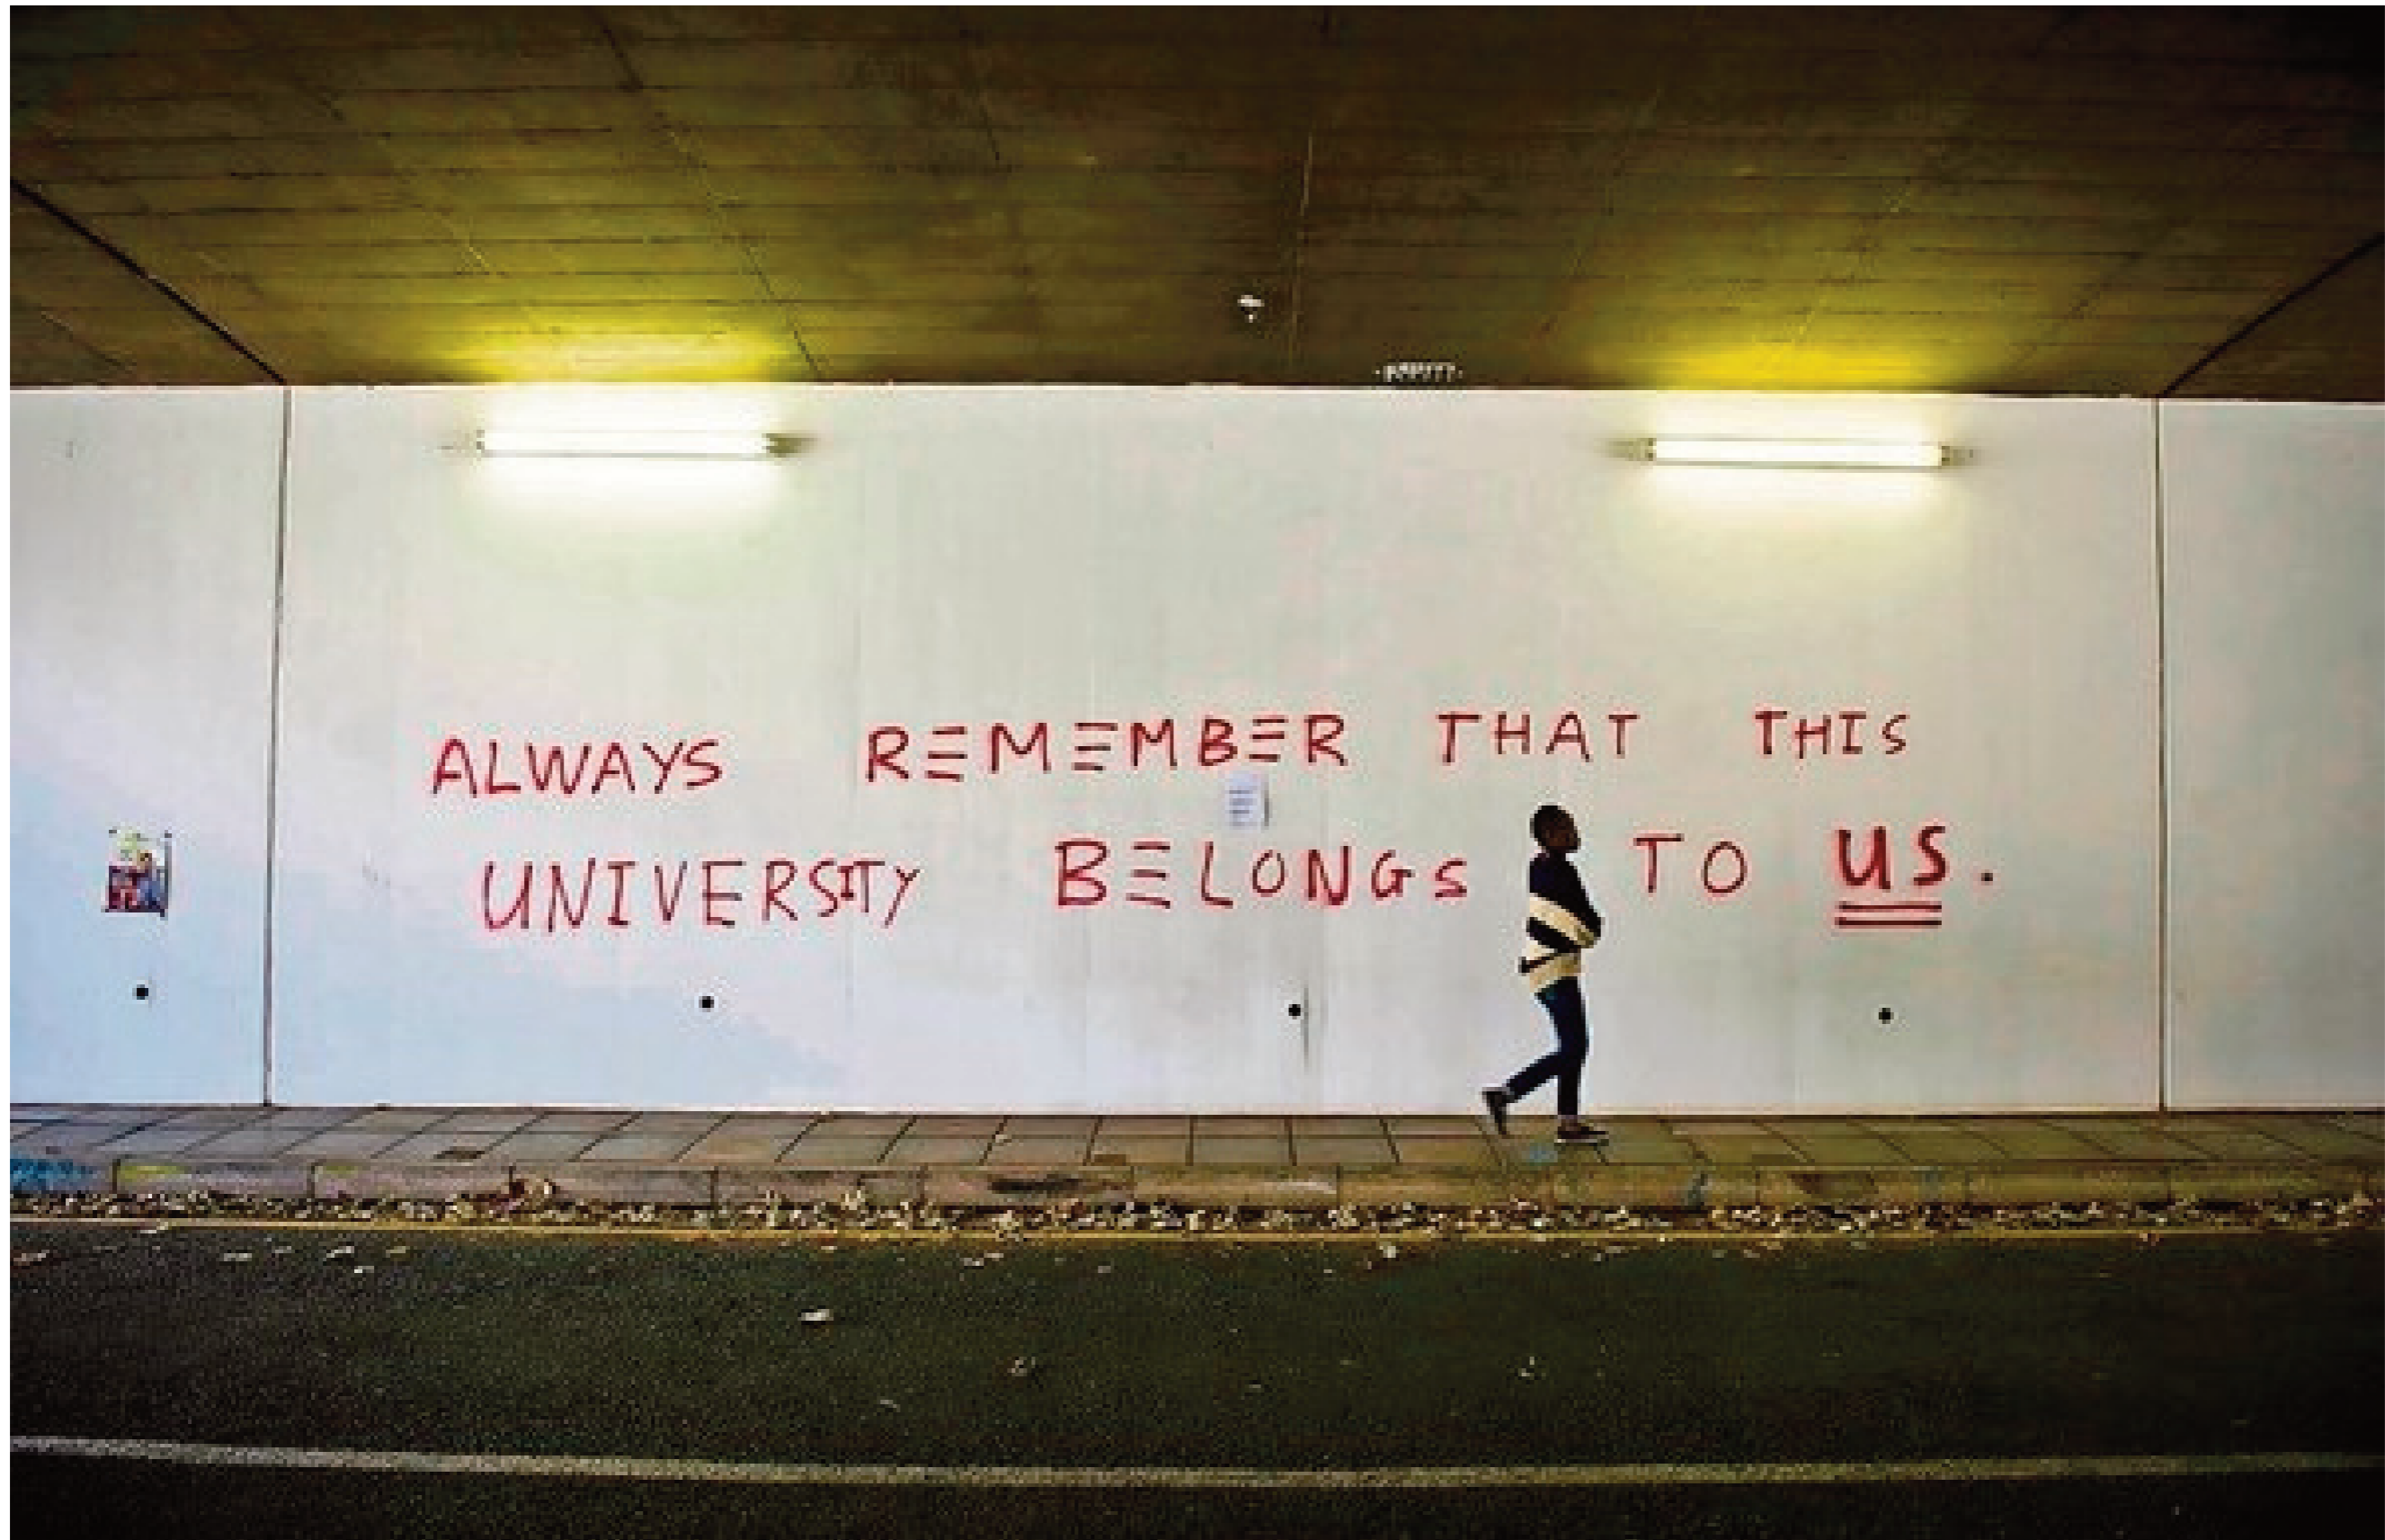 ALWAYS REMEMBER THAT THIS
UNIVERSITY BELONGS TO US.